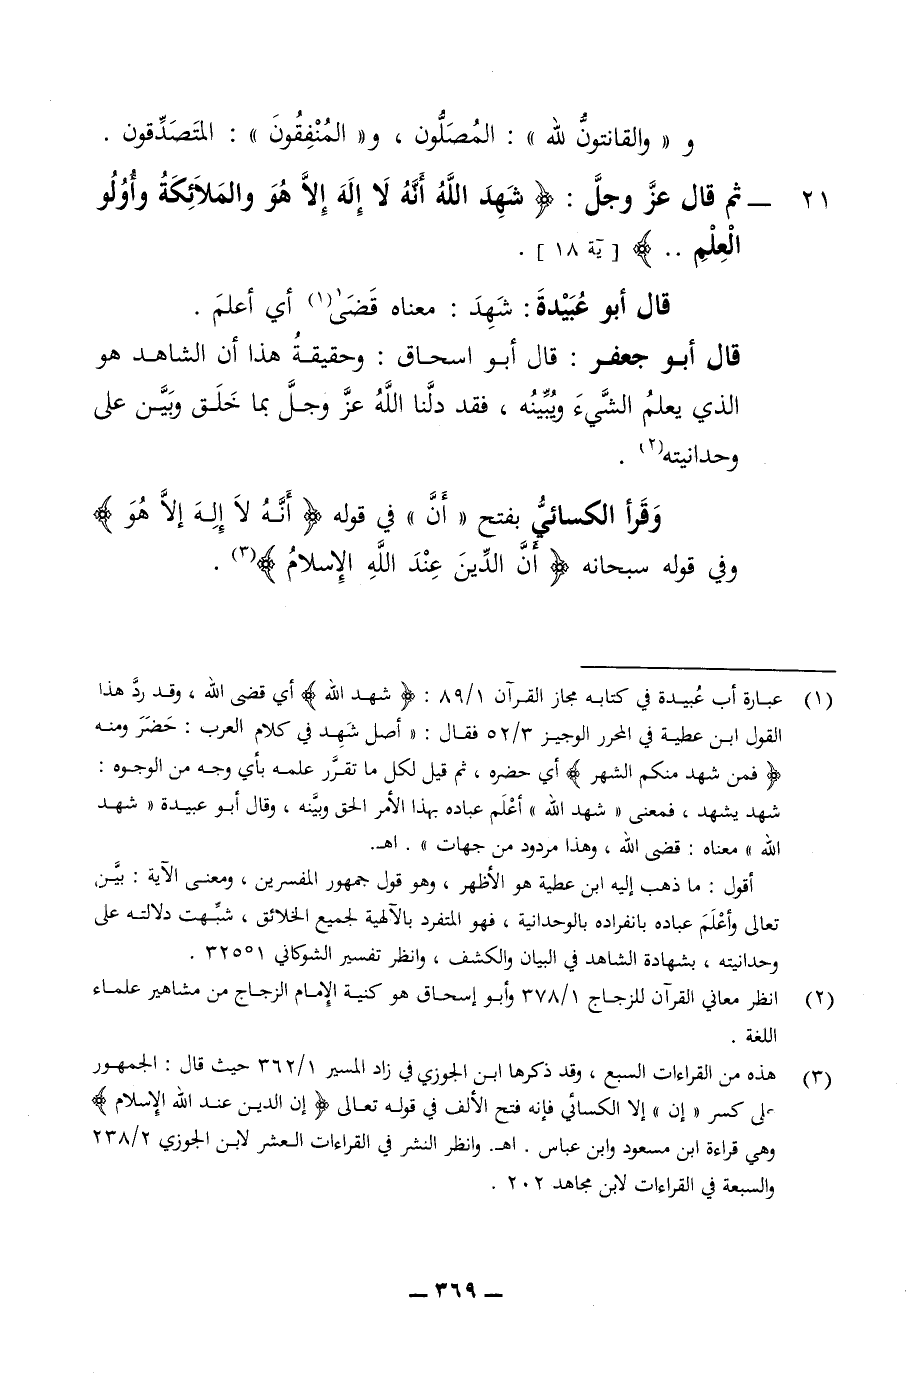 و « والقانتونُ لله » : المُصَلُّون ، و« المُنْفِقُونَ » : المتَصَدِّقون .
٢١ ــ ثم قال عزَّ وجلَّ : ﴿ شَهِدَ اللَّهُ أَنَّهُ لَا إِلَهَ إِلاَّ هُوَ والمَلاَئِكَةُ وأُوُلُو
الْعِلْمِ .. ﴾ [ يَة ١٨ ] .
قال أبو عُبَيْدةَ : شَهِدَ : معناه قَضَىٰ(١) أي أعلمَ .
قال أبـو جعفـر : قال أبـو اسحـاق : وحقيقـةُ هذا أن الشاهـد هو
الذي يعلمُ الشَّيءَ ويُبِّينُه ، فقد دلَّنا اللَّهُ عزَّ وجـلَّ بما خَلَـق وبَيَّـن على
وحدانيته(٢) .
وَقَرأ الكسائيُّ بفتح « أَنَّ » في قوله ﴿ أَنَّـهُ لاَ إِلـهَ إلاَّ هُوَ ﴾
وفي قوله سبحانه ﴿ أَنَّ الدِّينَ عِنْدَ اللَّهِ الإِسلامُ ﴾(٣) .
(١) عبـارة أب عُبيـدة في كتابـه مجاز القـرآن ٨٩/١ : ﴿ شهـد الله ﴾ أي قضى الله ، وقـد ردَّ هذا
القول ابن عطيـة في المحرر الوجيـز ٥٢/٣ فقـال : « أصل شَهِـد في كلام العرب : حَضَرَ ومنـه
﴿ فمن شهد منكم الشهر ﴾ أي حضره ، ثم قيل لكل ما تقرَّر علمـه بأي وجـه من الوجـوه :
شهد يشهد ، فمعنى « شهد الله » أعْلَم عباده بهذا الأمر الحق وبيَّنه ، وقال أبـو عبيـدة « شهـد
الله » معناه : قضى الله ، وهذا مردود من جهات » . اهـ.
أقول : ما ذهب إليه ابن عطية هو الأظهر ، وهو قول جمهور المفسرين ، ومعنـى الآية : بيَّـن
تعالى وأعْلَمَ عباده بانفراده بالوحدانية ، فهو المتفرد بالألهية لجميع الخلائق ، شبِّهت دلالتـه على
وحدانيته ، بشهادة الشاهد في البيان والكشف ، وانظر تفسير الشوكاني ٣٢٥°١ .
(٢) انظر معاني القرآن للزجـاج ٣٧٨/١ وأبـو إسحـاق هو كنيـة الإِمام الزجـاج من مشاهير علمـاء
اللغة .
(٣) هذه من القراءات السبع ، وقد ذكرها ابـن الجوزي في زاد المسير ٣٦٢/١ حيث قال : الجمهـور
لى كسر « إن » إلا الكسائي فإنه فتح الألف في قولـه تعـالى ﴿ إن الديـن عنـد الله الإِسلام ﴾
وهي قراءة ابن مسعود وابن عباس . اهـ. وانظر النشر في القراءات العـشر لابـن الجوزي ٢٣٨/٢
والسبعة في القراءات لابن مجاهد ٢٠٢ .
ــ ٣٦٩ ــ